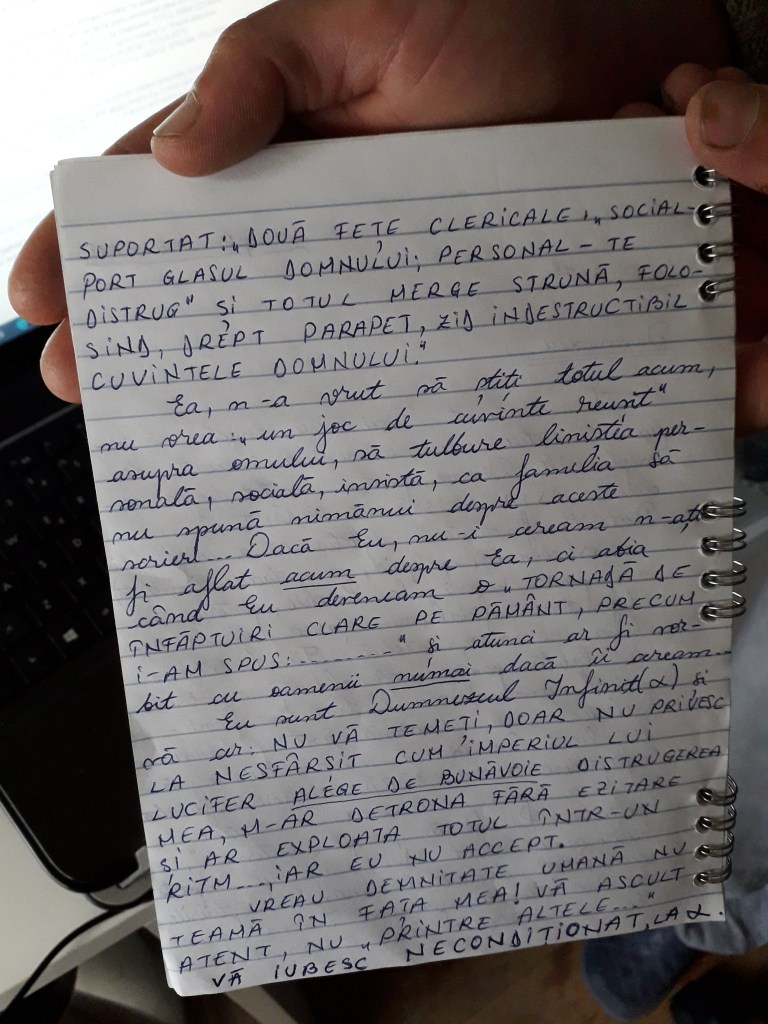 SUPORTAT: „DOUĂ FEȚE CLERICALE", „SOCIAL-
PORT GLASUL DOMNULUI; PERSONAL - TE
DISTRUG" ȘI TOTUL MERGE STRUNĂ, FOLO-
SIND, DREPT PARAPET, ZID INDESTRUCTIBIL
CUVINTELE DOMNULUI."
Ea, n-a vrut să știți totul acum,
nu vrea: „un joc de cuvinte reunit"
asupra omului, să tulbure liniștea per-
sonală, socială, insistă, ca familia să
nu spună nimănui despre aceste
scrieri... Dacă Eu, nu-i ceream n-ați
fi aflat acum despre Ea, ci abia
când Eu deveneam o „TORNADĂ DE
ÎNFĂPTUIRI CLARE PE PĂMÂNT, PRECUM
I-AM SPUS: ........." și atunci ar fi vor-
bit cu oamenii numai dacă îi ceream...
Eu sunt Dumnezeul Infinit(α) și
vă cer: NU VĂ TEMEȚI, DOAR NU PRIVESC
LA NESFÂRȘIT CUM IMPERIUL LUI
LUCIFER ALEGE DE BUNĂVOIE DISTRUGEREA
MEA, M-AR DETRONA FĂRĂ EZITARE
ȘI AR EXPLOATA TOTUL ÎNTR-UN
RITM..., IAR EU NU ACCEPT.
VREAU DEMNITATE UMANĂ NU
TEAMĂ ÎN FAȚA MEA! VĂ ASCULT
ATENT, NU „PRINTRE ALTELE..."
VĂ IUBESC NECONDIȚIONAT, LA α.